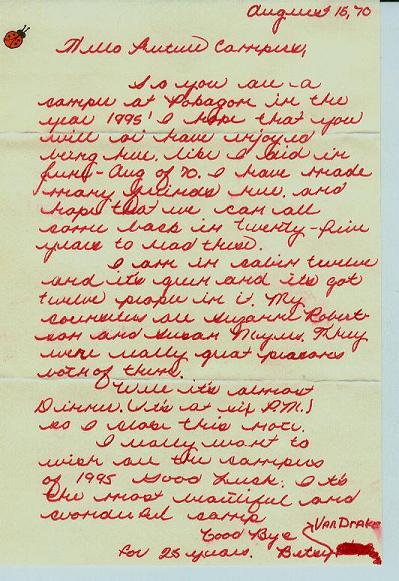 August 15, 70
Hello Future Campers,
So you are a
camper at Pokagon in the
year 1995! I hope that you
will or have enjoyed
being here. like I did in
June-Aug of 70. I have made
many friends here. and
hope that we can all
come back in twenty-five
years to read these.
I am in cabin twelve
and it's green and it's got
twelve people in it. My
counselors are Suzanne Robert-
son and Susan They
were really great persons
both of them.
Well it's almost
Dinner. (it's at six P.M.)
so I close this note.
I really want to
wish all the campers
of 1995 Good Luck. It's
the most beautiful and
wonderful camp
Good Bye
for 25 years. Betsy VanDrake